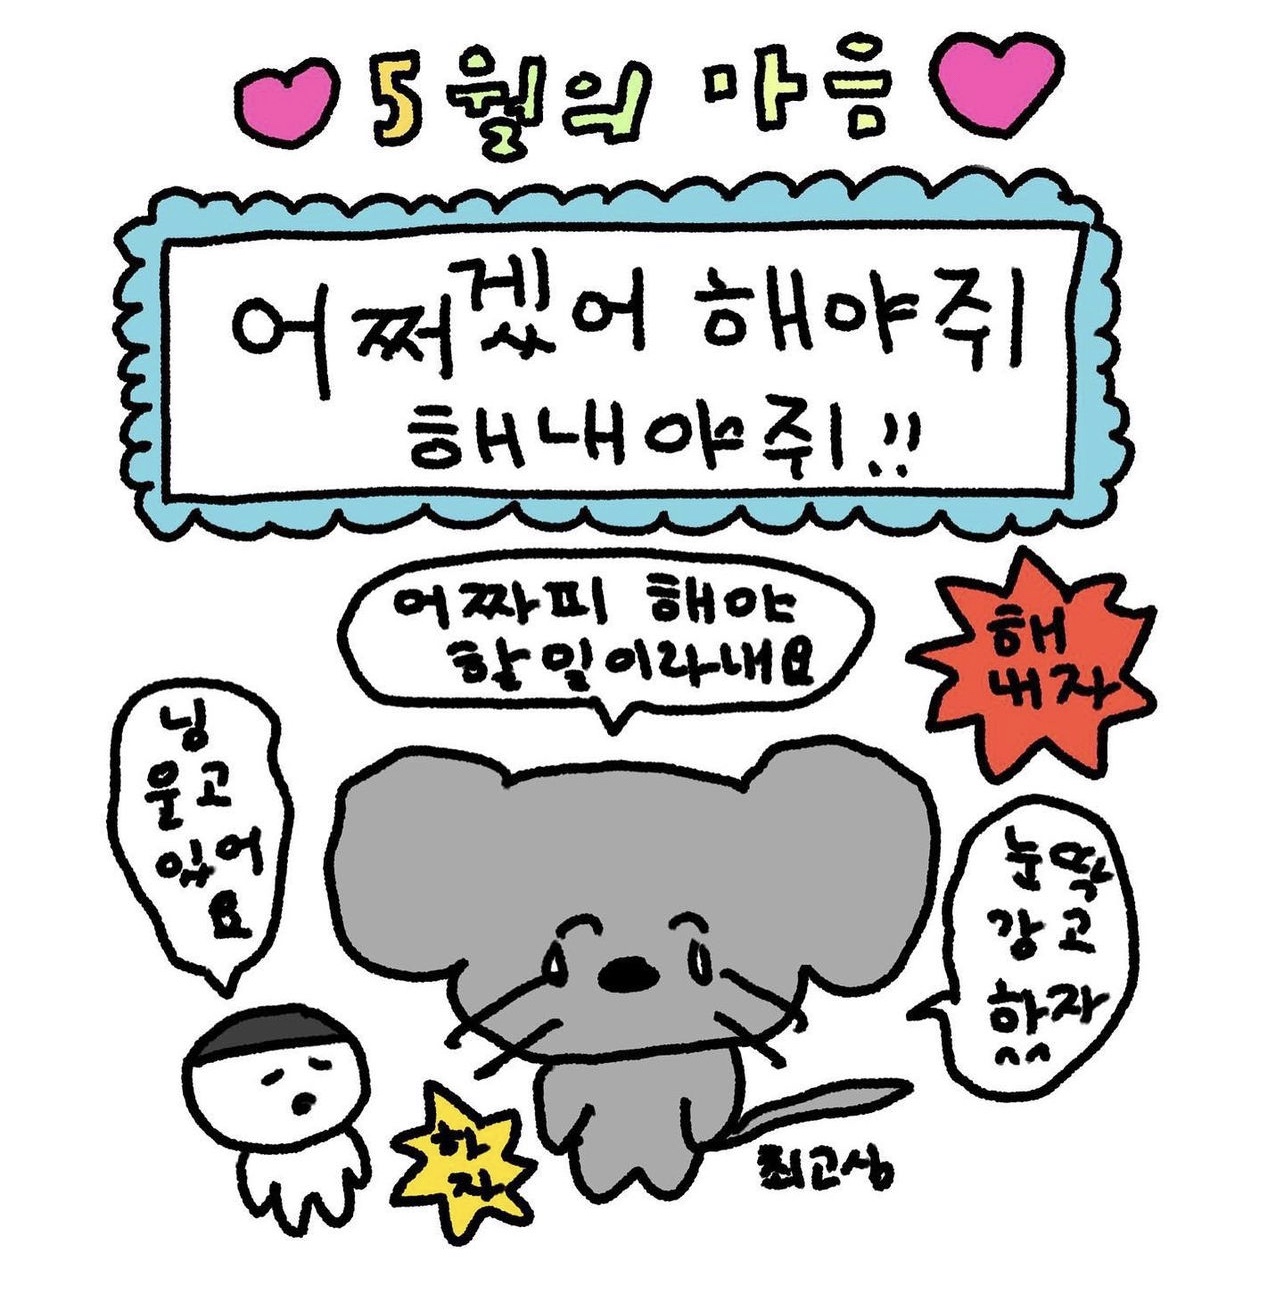 5월의 마음
어쩌겠어 해야쥐
해내야쥐!!
어짜피 해야
할 일이라내요
해
내자
닝
울고
있어
요
눈딱
감고
하자
^^
하
자
최고심